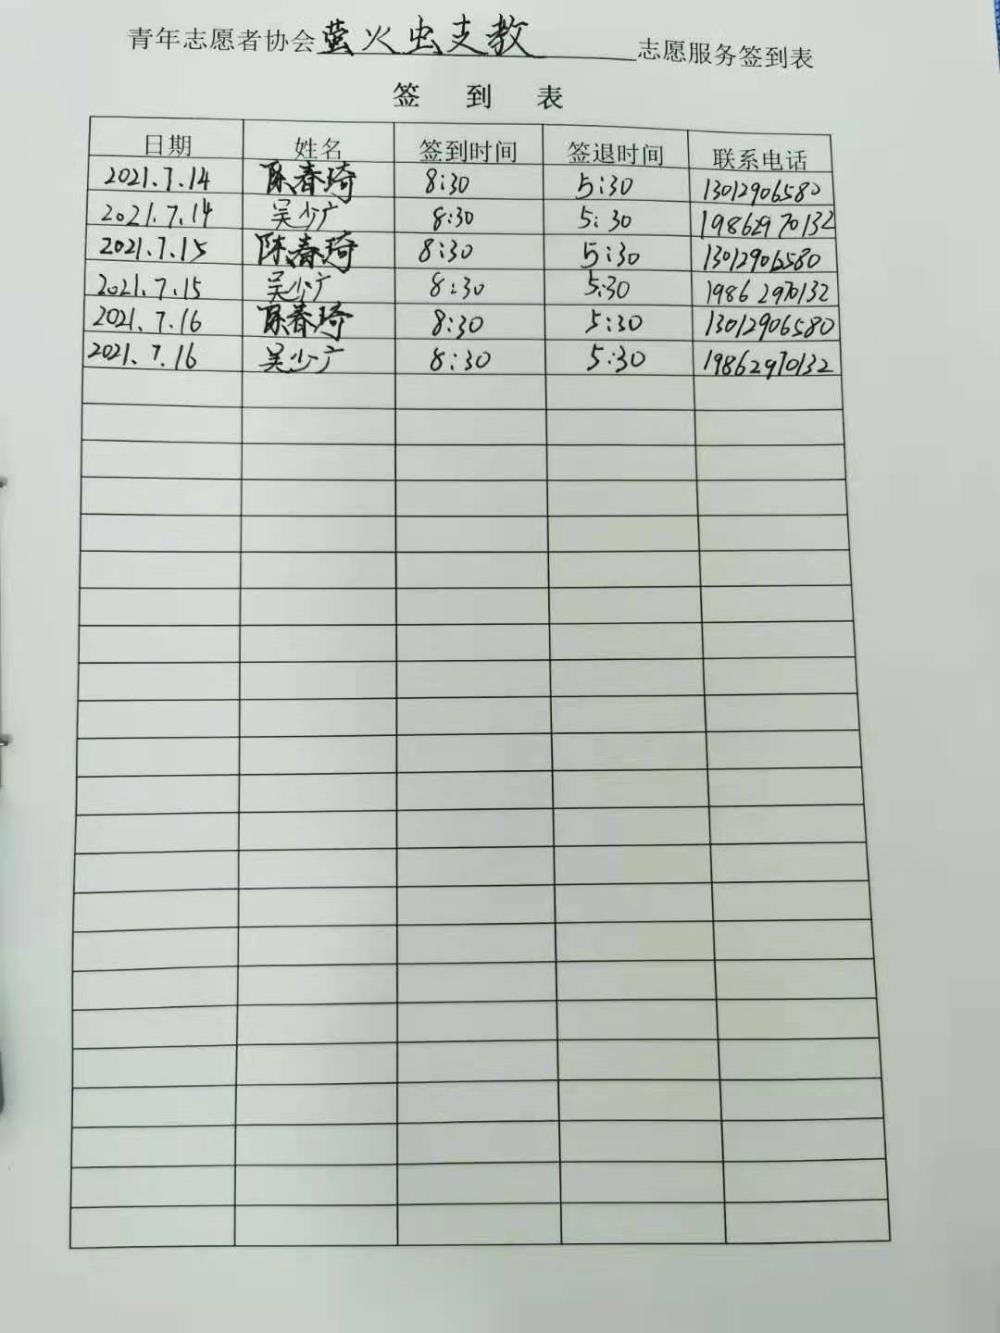 青年志愿者协会萤火虫支教志愿服务签到表
签 到 表
日期 姓名 签到时间 签退时间 联系电话
2021.7.14 陈春琦 8:30 5:30 13012906580
2021.7.14 吴少广 8:30 5:30 19862970132
2021.7.15 陈春琦 8:30 5:30 13012906580
2021.7.15 吴少广 8:30 5:30 19862970132
2021.7.16 陈春琦 8:30 5:30 13012906580
2021.7.16 吴少广 8:30 5:30 19862970132